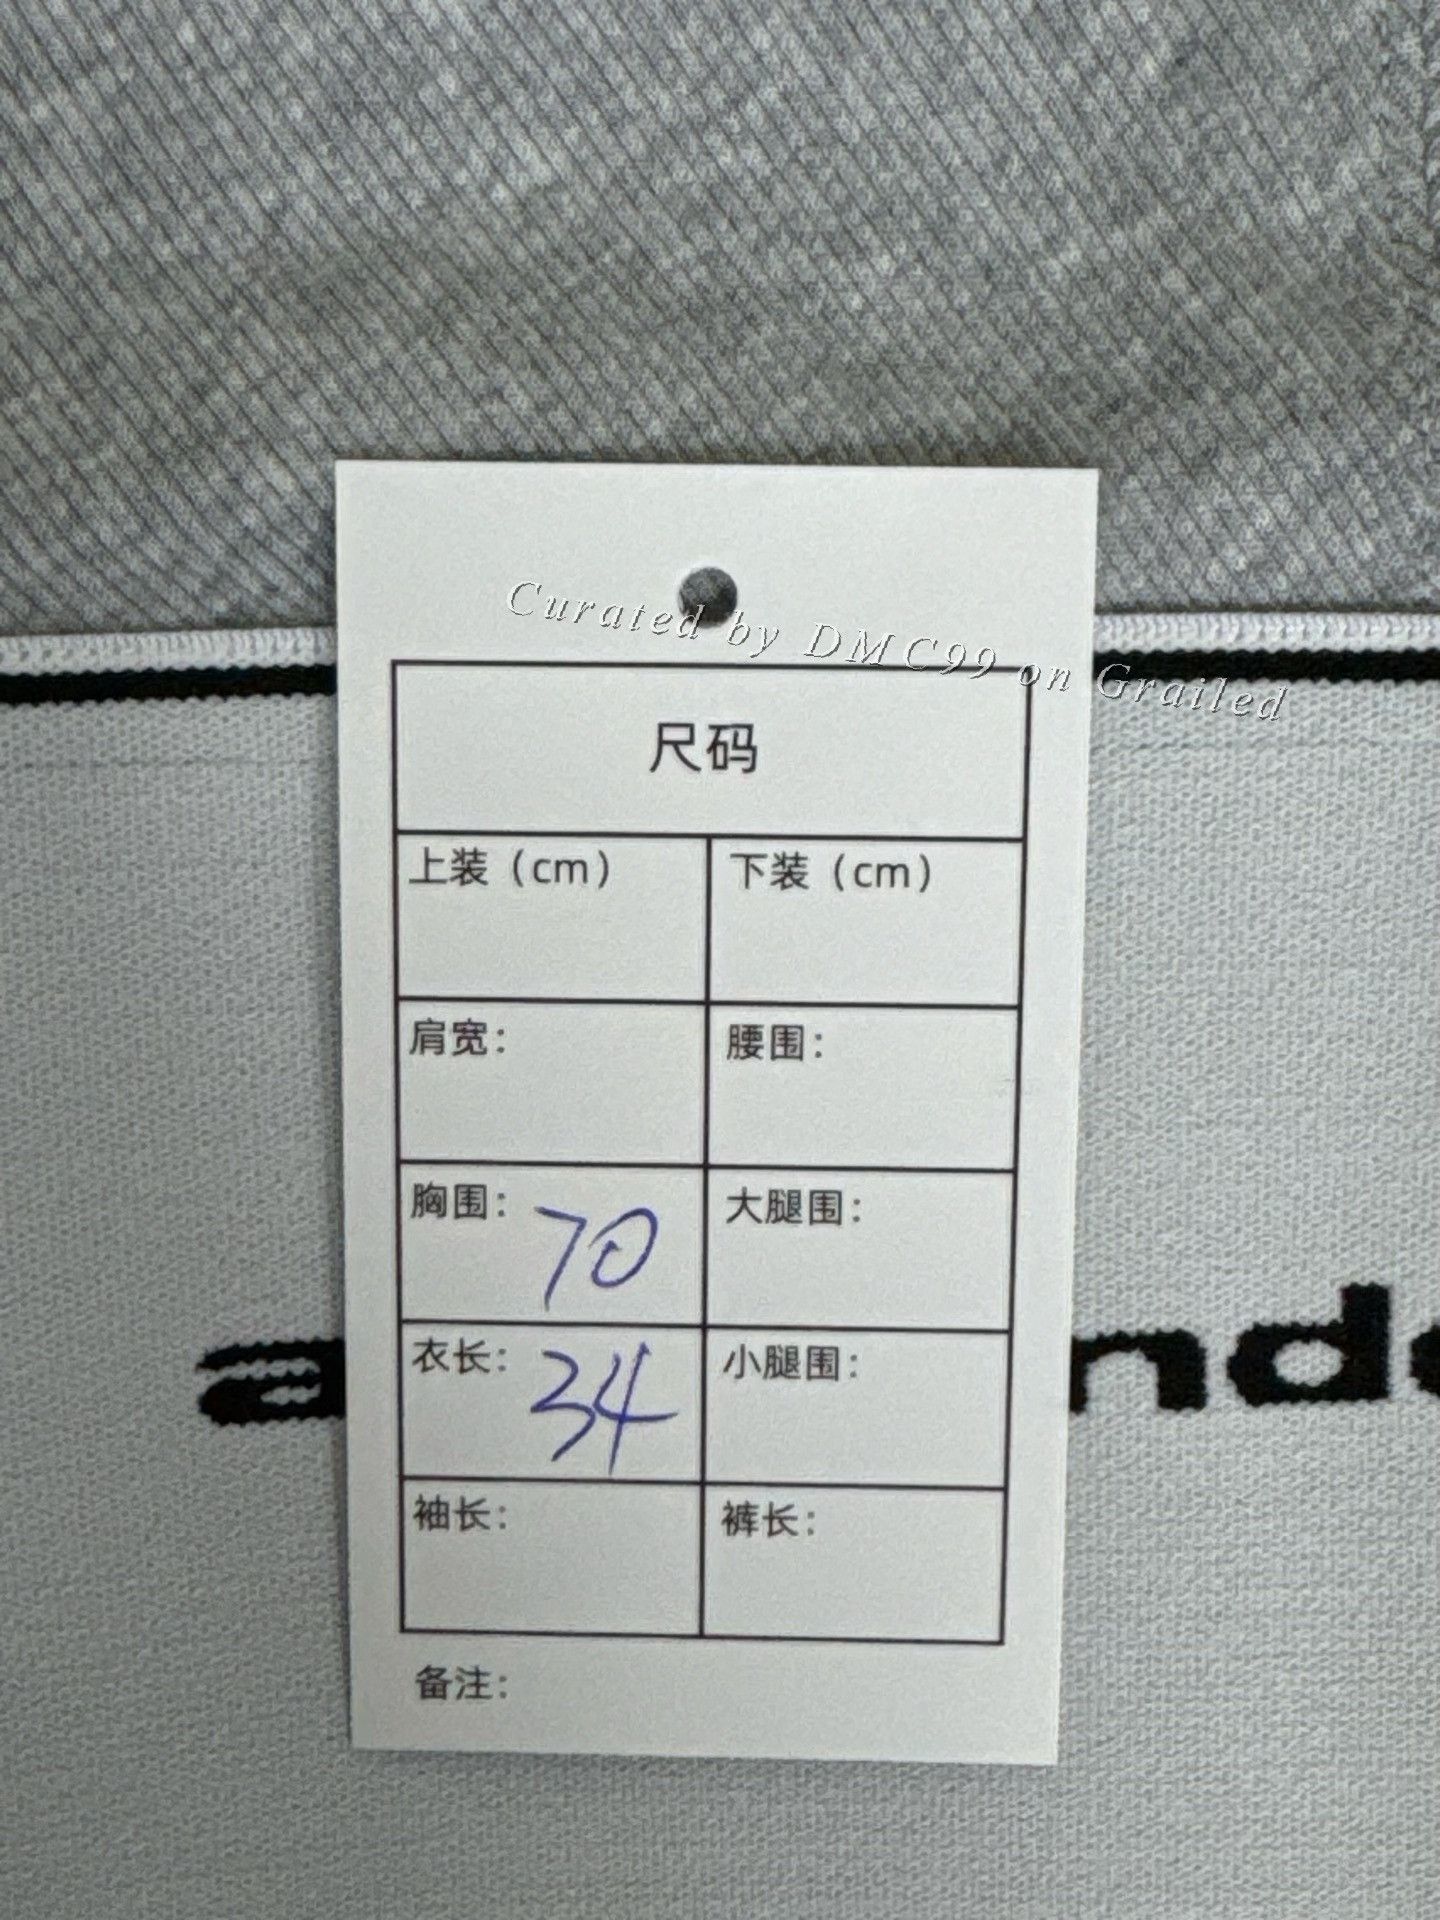 Curated by DMC99 on Grailed
尺码
上装（cm） 下装（cm）
肩宽： 腰围：
胸围：70 大腿围：
衣长：34 小腿围：
袖长： 裤长：
备注：